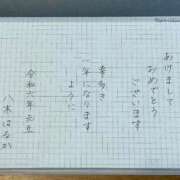 あけまして
おめでとう
ございます
幸多き
一年になります
ように
令和六年元旦
八木はるか